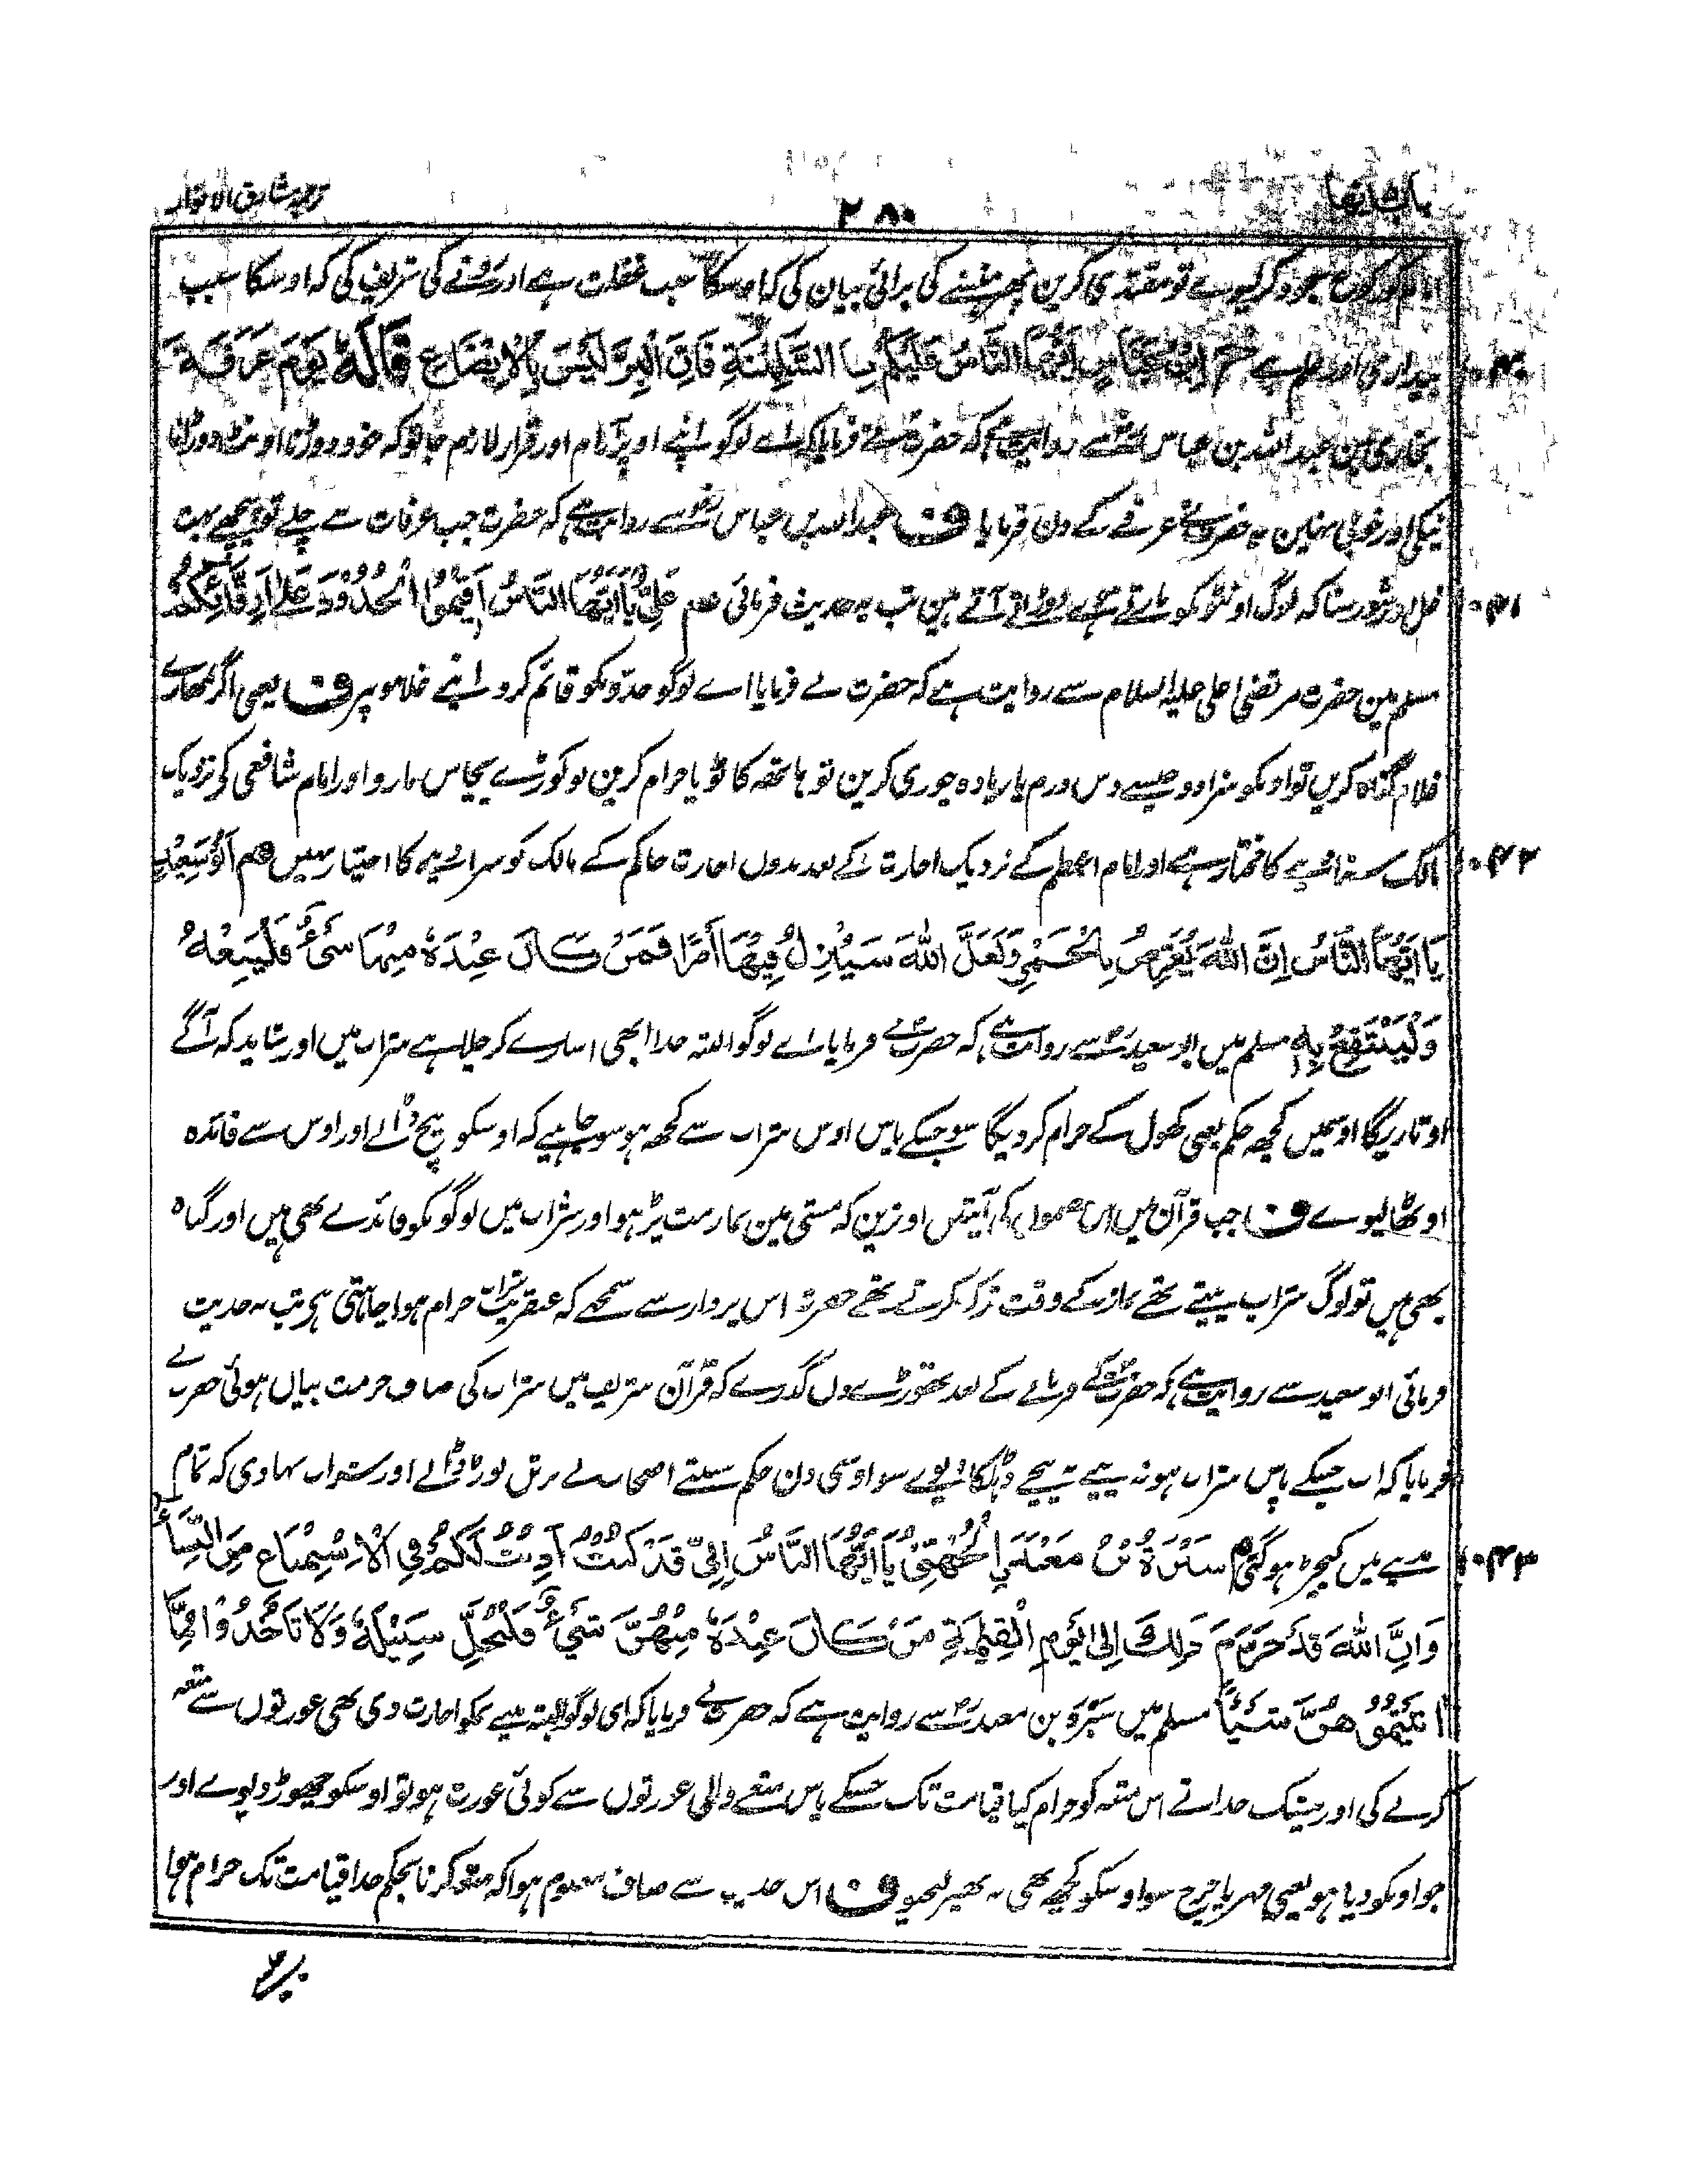 ترجمہ مشارق الانوار
۲۸۰
رکوع سجود کر لیوے تو مقتدی کرین پھر ہنسنے کی برائی بیان کی کہ اوسکا سبب غفلت ہے اور رونے کی تعریف کی کہ اوسکا سبب
بیداری اور علم ہے ابْنُ عَبَّاسٍ اَیُّهَا النَّاسُ عَلَیْكُمْ بِالسَّكِیْنَةِ فَاِنَّ الْبِرَّ لَیْسَ بِالْاِیْضَاعِ قَالَهٗ یَوْمَ عَرَفَةَ ۱۰۴۰
بخاری مین عبد اللہ بن عباس سے روایت ہے کہ حضرت نے فرمایا کہ اے لوگو اپنے اوپر آرام اور قرار لازم جانو کہ خود دوڑنا اونٹ دوڑانا
نیکی اور خوبی نہین یہ حضرت نے عرفے کے دن فرمایا ف عبد اللہ بن عباس سے روایت ہے کہ حضرت جب عرفات سے چلے تو پیچھے بہت
غل اور شور سنا کہ لوگ اونٹونکو مارتے دوڑاتے آتے ہین تب یہ حدیث فرمائی م عَلِیٌّ یَا اَیُّهَا النَّاسُ اَقِیْمُوْا الْحُدُوْدَ عَلٰی اَرِقَّائِكُمْ ۱۰۴۱
مسلم مین حضرت مرتضی علی علیہ السلام سے روایت ہے کہ حضرت نے فرمایا اے لوگو حدونکو قائم کرو اپنے غلامو پر ف یعنی اگر تمھارے
غلام گناہ کریں تو اونکو سزا دو جیسے دس درم یا زیادہ چوری کرین تو ہاتھہ کاٹو یا حرام کرین تو کوڑے پچاس مارو اور امام شافعی کی نزدیک
مالک سزا دینے کا مختار ہے اور امام اعظم کے نزدیک اجازت کے بعد بدوں اجازت حاکم کے مالک کو سزا دینے کا اختیار نہیں م اَبُوْسَعِیْدٍ ۱۰۴۲
یَا اَیُّهَا النَّاسُ اِنَّ اللّٰهَ یُعَرِّضُ بِالْخَمْرِ وَلَعَلَّ اللّٰهَ سَیُنْزِلُ فِیْهَا اَمْرًا فَمَنْ كَانَ عِنْدَهٗ مِنْهَا شَیْءٌ فَلْیَبِعْهُ
وَلْیَنْتَفِعْ بِهٖ مسلم میں ابو سعید سے روایت ہے کہ حضرت نے فرمایا اے لوگو البتہ خدا ابھی اشارے کر چلا ہے شراب میں اور شاید کہ آگے
اوتاریگا اوسمیں کچھ حکم یعنی کھول کے حرام کر دیگا سو جسکے پاس اوس شراب سے کچھ ہو سو چاہیے کہ اوسکو بیچ ڈالے اور اوس سے فائدہ
اوٹھا لیوے ف جب قرآن میں اس مضمون کی آیتیں اوترین کہ مستی مین نماز مت پڑھو اور شراب میں لوگونکو فائدے بھی ہیں اور گناہ
بھی ہیں تو لوگ شراب پیتے تھے نماز کے وقت ترک کرتے تھے حضرت اس پردازسے سمجھے کہ عنقریب شراب حرام ہوا چاہتی ہی تب یہ حدیث
فرمائی ابو سعید سے روایت ہے کہ حضرت کے فرمانے کے بعد تھوڑے دن گذرے کہ قرآن شریف میں شراب کی صاف حرمت بیاں ہوئی حضرت نے
فرمایا کہ اب جسکے پاس شراب ہو نہ پیے نہ بیچے سو اوسی دن حکم سنتے اصحاب نے برتن توڑ ڈالے اور شراب بہا دی کہ تمام
مدینے میں کیچڑ ہو گئی م سَبْرَةُ بْنُ مَعْبَدٍ الْجُهَنِیُّ یَا اَیُّهَا النَّاسُ اِنِّیْ قَدْ كُنْتُ اَذِنْتُ لَكُمْ فِی الْاِسْتِمْتَاعِ مِنَ النِّسَاءِ ۱۰۴۳
وَاِنَّ اللّٰهَ قَدْ حَرَّمَ ذٰلِكَ اِلٰی یَوْمِ الْقِیٰمَةِ فَمَنْ كَانَ عِنْدَهٗ مِنْهُنَّ شَیْءٌ فَلْیُخَلِّ سَبِیْلَهٗ وَلَا تَاْخُذُوْا مِمَّا
اٰتَیْتُمُوْهُنَّ شَیْئًا مسلم میں سَبْرَہ بن معبد سے روایت ہے کہ حضرت نے فرمایا کہ ای لوگو البتہ میںنے تمکو اجازت دی تھی عورتوں سے متعہ
کرنے کی اور بیشک خدا نے اس متعہ کو حرام کیا قیامت تک جسکے پاس متعے والی عورتوں سے کوئی عورت ہو تو اوسکو چھوڑ دیوے اور
جو اونکو دیا ہو یعنی مہر یا خرچ سو اوسکو کچھ بھی نہ پھیر لیجیو ف اس حدیث سے صاف معلوم ہوا کہ متعہ کرنا بحکم خدا قیامت تک حرام ہوا